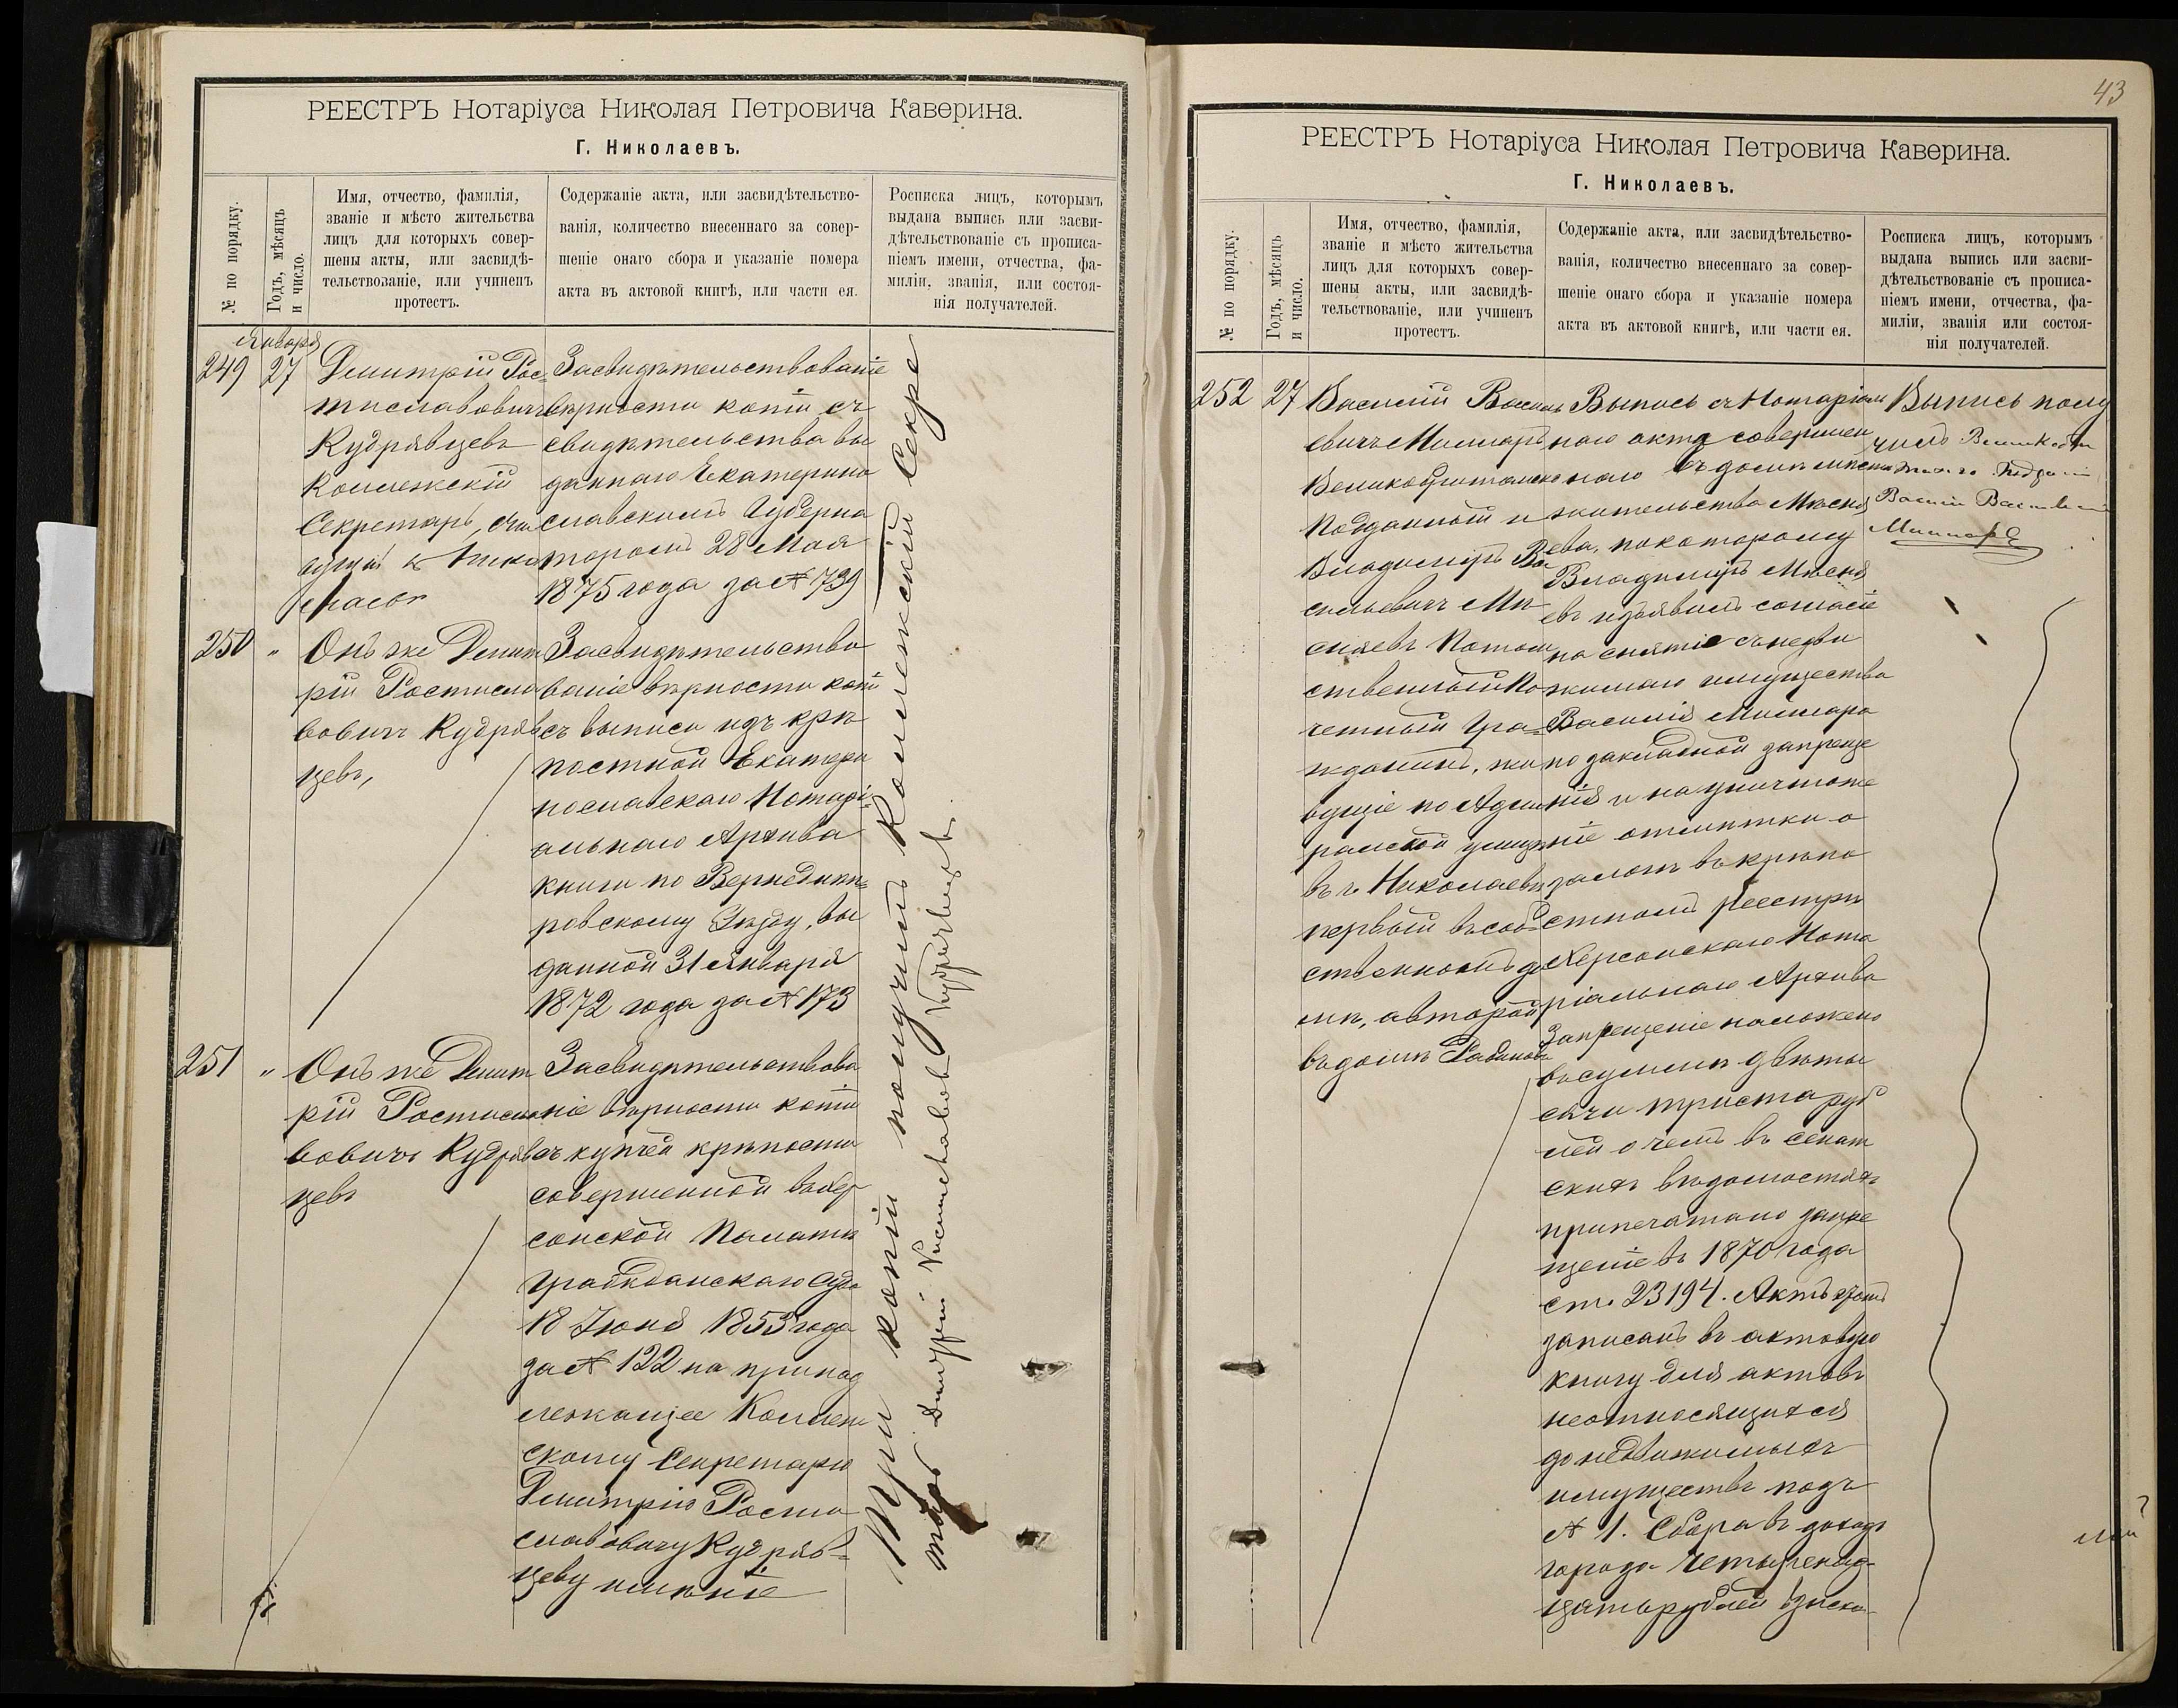 РЕЕСТРЪ Нотаріуса Николая Петровича Каверина.
Г. Николаевъ.
№ по порядку.
Годъ, мѣсяцъ
и число.
Имя, отчество, фамилія,
званіе и мѣсто жительства
лицъ для которыхъ совер-
шены акты, или засвидѣ-
тельствозаніе, или учиненъ
протестъ.
Содержаніе акта, или засвидѣтельство-
ванія, количество внесеннаго за совер-
шеніе онаго сбора и указаніе номера
акта въ актовой книгѣ, или части ея.
Росписка лицъ, которымъ
выдана выпись или засви-
дѣтельствованіе съ прописа-
ніемъ имени, отчества, фа-
миліи, званія, или состоя-
нія получателей.
Января
249 27
Дмитрій Рос-
тиславовичъ
Кудрявцевъ
Коллежскій
Секретарь,
Засвидѣтельствованіе
вѣрности копіи съ
свидѣтельства вы
даннаго Екатерино
славскимъ Губерна
торомъ 28 Мая
1875 года за № 739
250 "
Онъ же Дмит
рій Ростисла
вовичъ Кудряв
цевъ,
Засвидѣтельство
ваніе вѣрности копіи
съ выписи изъ крѣ
постной Екатери
нославскаго Нотарі-
альнаго Архива
книги по Верхнеднѣп-
ровскому Уѣзду, вы
данной 31 Января
1872 года за № 173
251 "
Онъ же Дмит
рій Ростисла
вовичъ Кудряв
цевъ
Засвидѣтельствова
ніе вѣрности копіи
съ купчей крѣпости
совершенной въ Хер
сонской Палатѣ
Гражданскаго Суда
18 Іюня 1853 года
за № 122 на принад
лежащее Коллеж
скому Секретарю
Дмитрію Рости
славовичу Кудряв-
цеву имѣніе
Три копіи получилъ Коллежскій Секре
тарь Дмитрій Ростиславовъ Кудрявцевъ.
43
РЕЕСТРЪ Нотаріуса Николая Петровича Каверина.
Г. Николаевъ.
№ по порядку.
Годъ, мѣсяцъ
и число.
Имя, отчество, фамилія,
званіе и мѣсто жительства
лицъ для которыхъ совер-
шены акты, или засвидѣ-
тельствованіе, или учиненъ
протестъ.
Содержаніе акта, или засвидѣтельство-
ванія, количество внесеннаго за совер-
шеніе онаго сбора и указаніе номера
акта въ актовой книгѣ, или части ея.
Росписка лицъ, которымъ
выдана выпись или засви-
дѣтельствованіе съ прописа-
ніемъ имени, отчества, фа-
миліи, званія или состоя-
нія получателей.
252 27
Василій Василь
евичъ Миллардъ
Великобританск
Подданный и
Владимиръ Ва
сильевичъ Мя
сняевъ Потом
ственный По
четный Гра-
жданинъ, жи
вущіе по Адми
ральской улицѣ
въ г. Николаевѣ
первый въ соб
ственномъ до
мѣ, а второй
въ домѣ
Выпись съ Нотаріаль
наго акта совершен
наго въ домѣ мѣста
жительства Мясня
ева, по которому
Владимиръ Мясня
евъ изъявилъ согласіе
на снятіе съ недви
жимаго имущества
Василія Милларда
по закладной запреще
нія и на уничтоже
ніе отмѣтки о
залогѣ въ крѣпо
стномъ реестрѣ
Херсонскаго Нота
ріальнаго Архива
Запрещеніе наложено
въ суммѣ двѣ ты
сячи триста руб
лей о чемъ въ Сенат
скихъ вѣдомостяхъ
припечатано запре
щеніе въ 1870 года
ст. 23194. Актъ этотъ
записанъ въ актовую
книгу для актовъ
неотносящихся
до недвижимыхъ
имуществъ подъ
№ 1. Сбора въ доходъ
города четырнад-
цать рублей взыска-
Выпись полу
чилъ Великобри
танскій Подданный
Василій Васильевичъ
Миллардъ